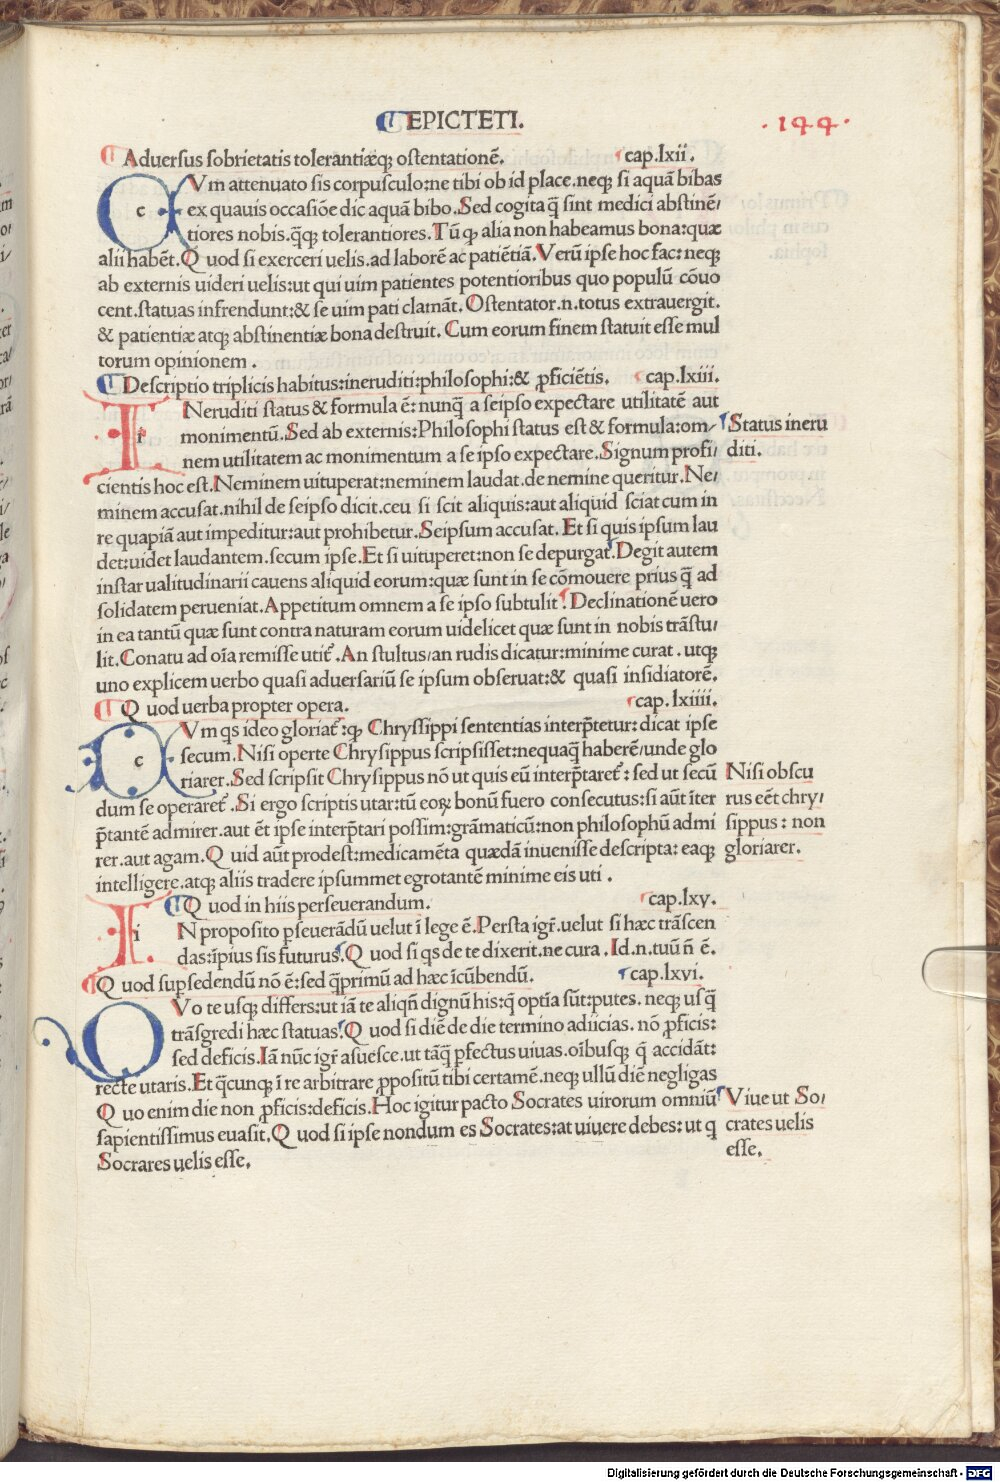 EPICTETI.
.144.
Aduersus sobrietatis tolerantiæq; ostentationē. cap.lxii.
CVm attenuato sis corpusculo:ne tibi ob id place.neq; si aquā bibas
ex quauis occasiōe dic aquā bibo.Sed cogita q̄ sint medici abstinē/
tiores nobis.q̄q; tolerantiores.Tū ꝙ alia non habeamus bona:quæ
alii habēt.Quod si exerceri uelis.ad laborē ac patiētiā.Verū ipse hoc fac:neq;
ab externis uideri uelis:ut qui uim patientes potentioribus quo populū cōuo
cent.statuas infrendunt:& se uim pati clamāt.Ostentator.n.totus extrauergit.
& patientiæ atq; abstinentiæ bona destruit.Cum eorum finem statuit esse mul
torum opinionem.
Descriptio triplicis habitus:ineruditi:philosophi:& ꝓficiētis. cap.lxiii.
INeruditi status & formula ē: nunq̄ a seipso expectare utilitatē aut
monimentū.Sed ab externis:Philosophi status est & formula:om/
nem utilitatem ac monimentum a se ipso expectare.Signum profi/
cientis hoc est.Neminem uituperat:neminem laudat.de nemine queritur.Ne/
minem accusat.nihil de seipso dicit.ceu si scit aliquis:aut aliquid sciat cum in
re quapiā aut impeditur:aut prohibetur.Seipsum accusat.Et si quis ipsum lau
det:uidet laudantem.secum ipse.Et si uituperet:non se depurgat.Degit autem
instar ualitudinarii cauens aliquid eorum:quæ sunt in se cōmouere prius q̄ ad
solidatem perueniat.Appetitum omnem a se ipso subtulit.Declinationē uero
in ea tantū quæ sunt contra naturam eorum uidelicet quæ sunt in nobis trāstu/
lit.Conatu ad oīa remisse utit̄.An stultus/an rudis dicatur:minime curat.utq;
uno explicem uerbo quasi aduersariū se ipsum obseruat:& quasi insidiatorē.
Status ineru
diti.
Quod uerba propter opera. cap.lxiiii.
CVm qs ideo gloriat̄:ꝙ Chryssippi sententias interp̄tetur:dicat ipse
secum.Nisi operte Chrysippus scripsisset:nequaq̄ haberē/unde glo
riarer.Sed scripsit Chrysippus nō ut quis eū interp̄taret̄:sed ut secū
dum se operaret̄.Si ergo scriptis utar:tū eoꝝ bonū fuero consecutus:si aūt īter
p̄tantē admirer.aut ēt ipse interp̄tari possim:grāmaticū:non philosophū admi
rer.aut agam.Quid aūt prodest:medicamēta quædā inuenisse descripta:eaq;
intelligere.atq; aliis tradere ipsummet egrotantē minime eis uti.
Nisi obscu
rus eēt chry/
sippus: non
gloriarer.
Quod in hiis perseuerandum. cap.lxv.
IN proposito ꝑseuerādū uelut ī lege ē.Persta igr̄.uelut si hæc trāscen
das:īpius sis futurus.Quod si qs de te dixerit.ne cura.Id.n.tuū n̄ ē.
Quod supsedendū nō ē:sed q̄primū ad hæc īcūbendū. cap.lxvi.
QVo te usq; differs:ut iā te aliqn̄ dignū his:q̄ optīa sūt:putes.neq; usq̄
trāsgredi hæc statuas.Quod si diē de die termino adiicias.nō ꝓficis:
sed deficis.Iā nūc igr̄ asuesce.ut tāq̄ ꝑfectus uiuas.oībusq; q̄ accidāt:
recte utaris.Et q̄cunq; ī re arbitrare ꝓpositū tibi certamē.neq; ullū diē negligas
Quo enim die non ꝓficis:deficis.Hoc igitur pacto Socrates uirorum omniū
sapientissimus euasit.Quod si ipse nondum es Socrates:at uiuere debes:ut q
Socrares uelis esse.
Viue ut So/
crates uelis
esse.
Digitalisierung gefördert durch die Deutsche Forschungsgemeinschaft - DFG